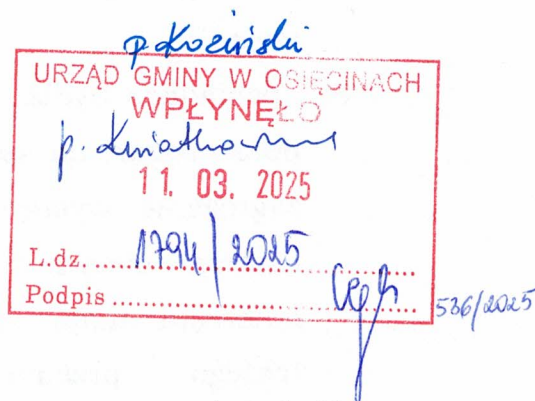 p. Koziński
URZĄD GMINY W OSIĘCINACH
WPŁYNĘŁO
p. Kwiatkowska
11. 03. 2025
L.dz. 1794/2025
Podpis
536/2025